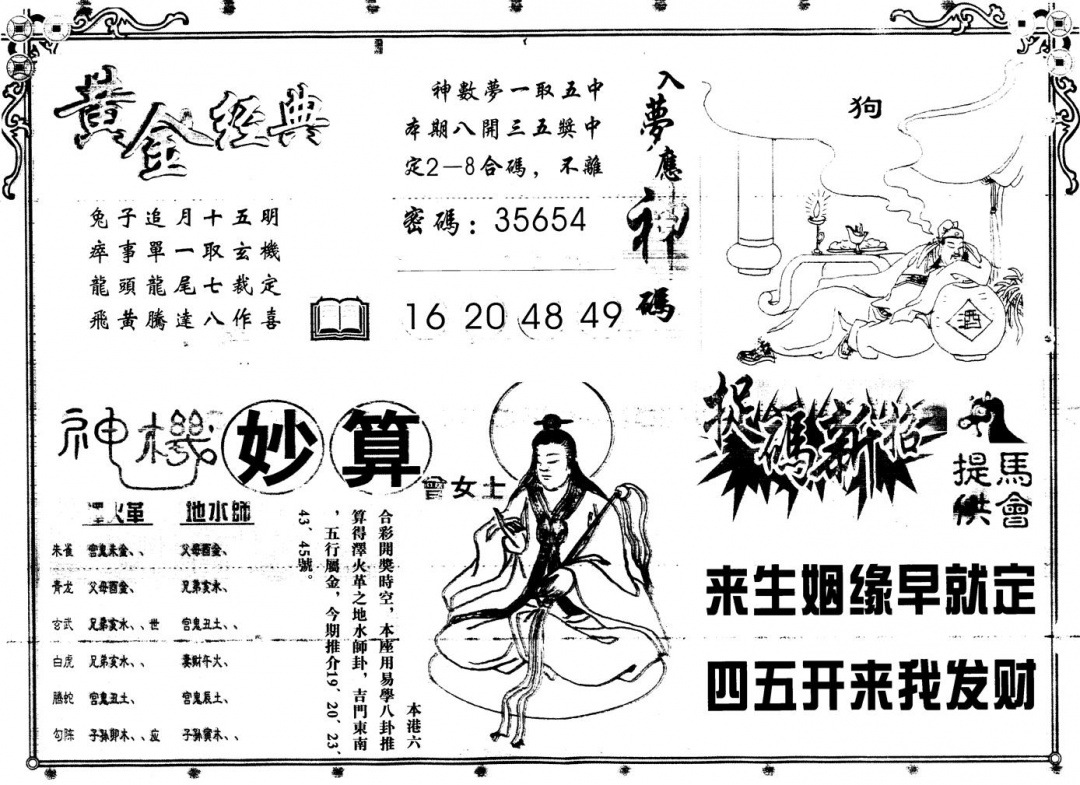 黃金經典
兔子追月十五明
瘁事單一取玄機
龍頭龍尾七裁定
飛黃騰達八作喜
神數夢一取五中
本期八開三五獎中
定2—8合碼，不離
密碼：35654
16 20 48 49
入夢應神碼
狗
酒
神機妙算
曾女士
火革 地水師
朱雀 官鬼未金、、 父母酉金、
青龙 父母酉金、 兄弟亥水、
玄武 兄弟亥水、、世 官鬼丑土、、
白虎 兄弟亥水、、 妻财午火、
腾蛇 官鬼丑土、 官鬼辰土、
勾陈 子孫卯木、、应 子孫寅木、、
本港六
合彩開獎時空，本座用易學八卦推
算得澤火革之地水師卦，吉門東南
，五行屬金，今期推介19、20、23、
43、45號。
捉碼新招
馬會
提供
来生姻缘早就定
四五开来我发财